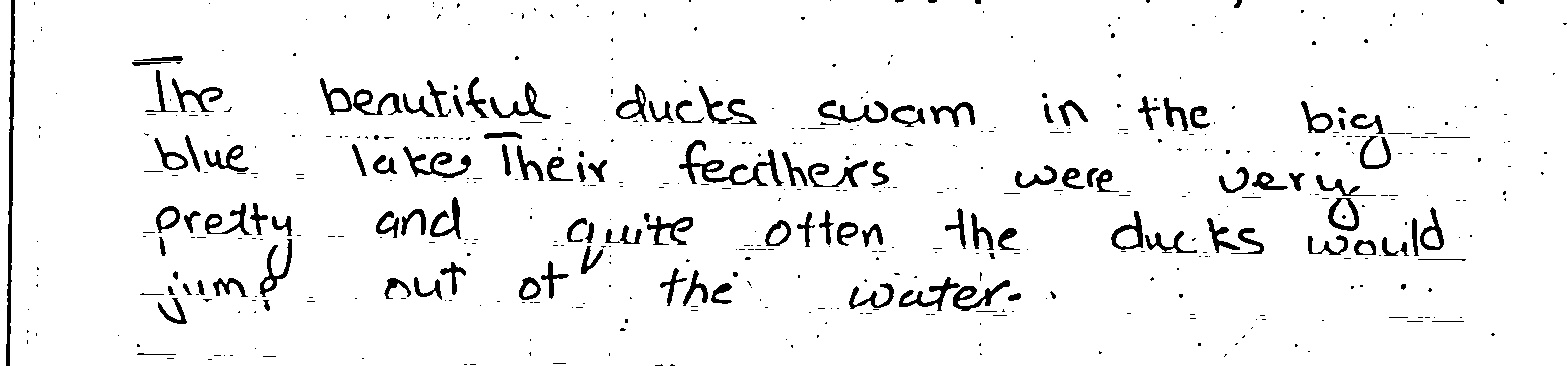 The beautiful ducks swam in the big
blue lake. Their feathers were very
pretty and quite often the ducks would
jump out of the water.